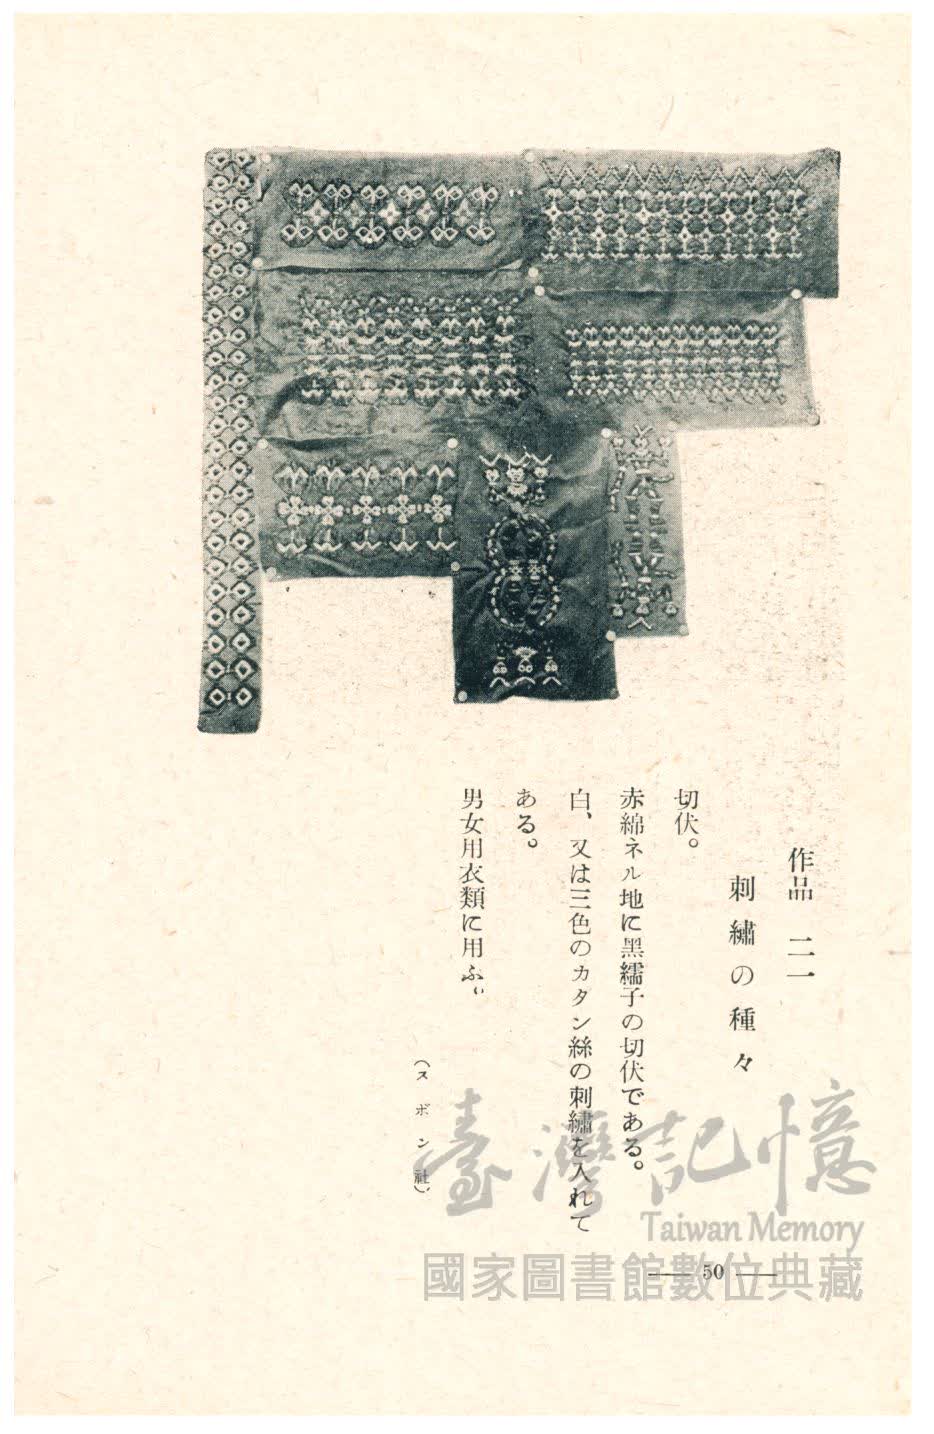 作品 二一
刺繡の種々
切伏。
赤綿ネル地に黑繻子の切伏である。
白、又は三色のカタン絲の刺繡を入れて
ある。
男女用衣類に用ふ。
(スボン社)
臺灣記憶
Taiwan Memory
國家圖書館數位典藏
50